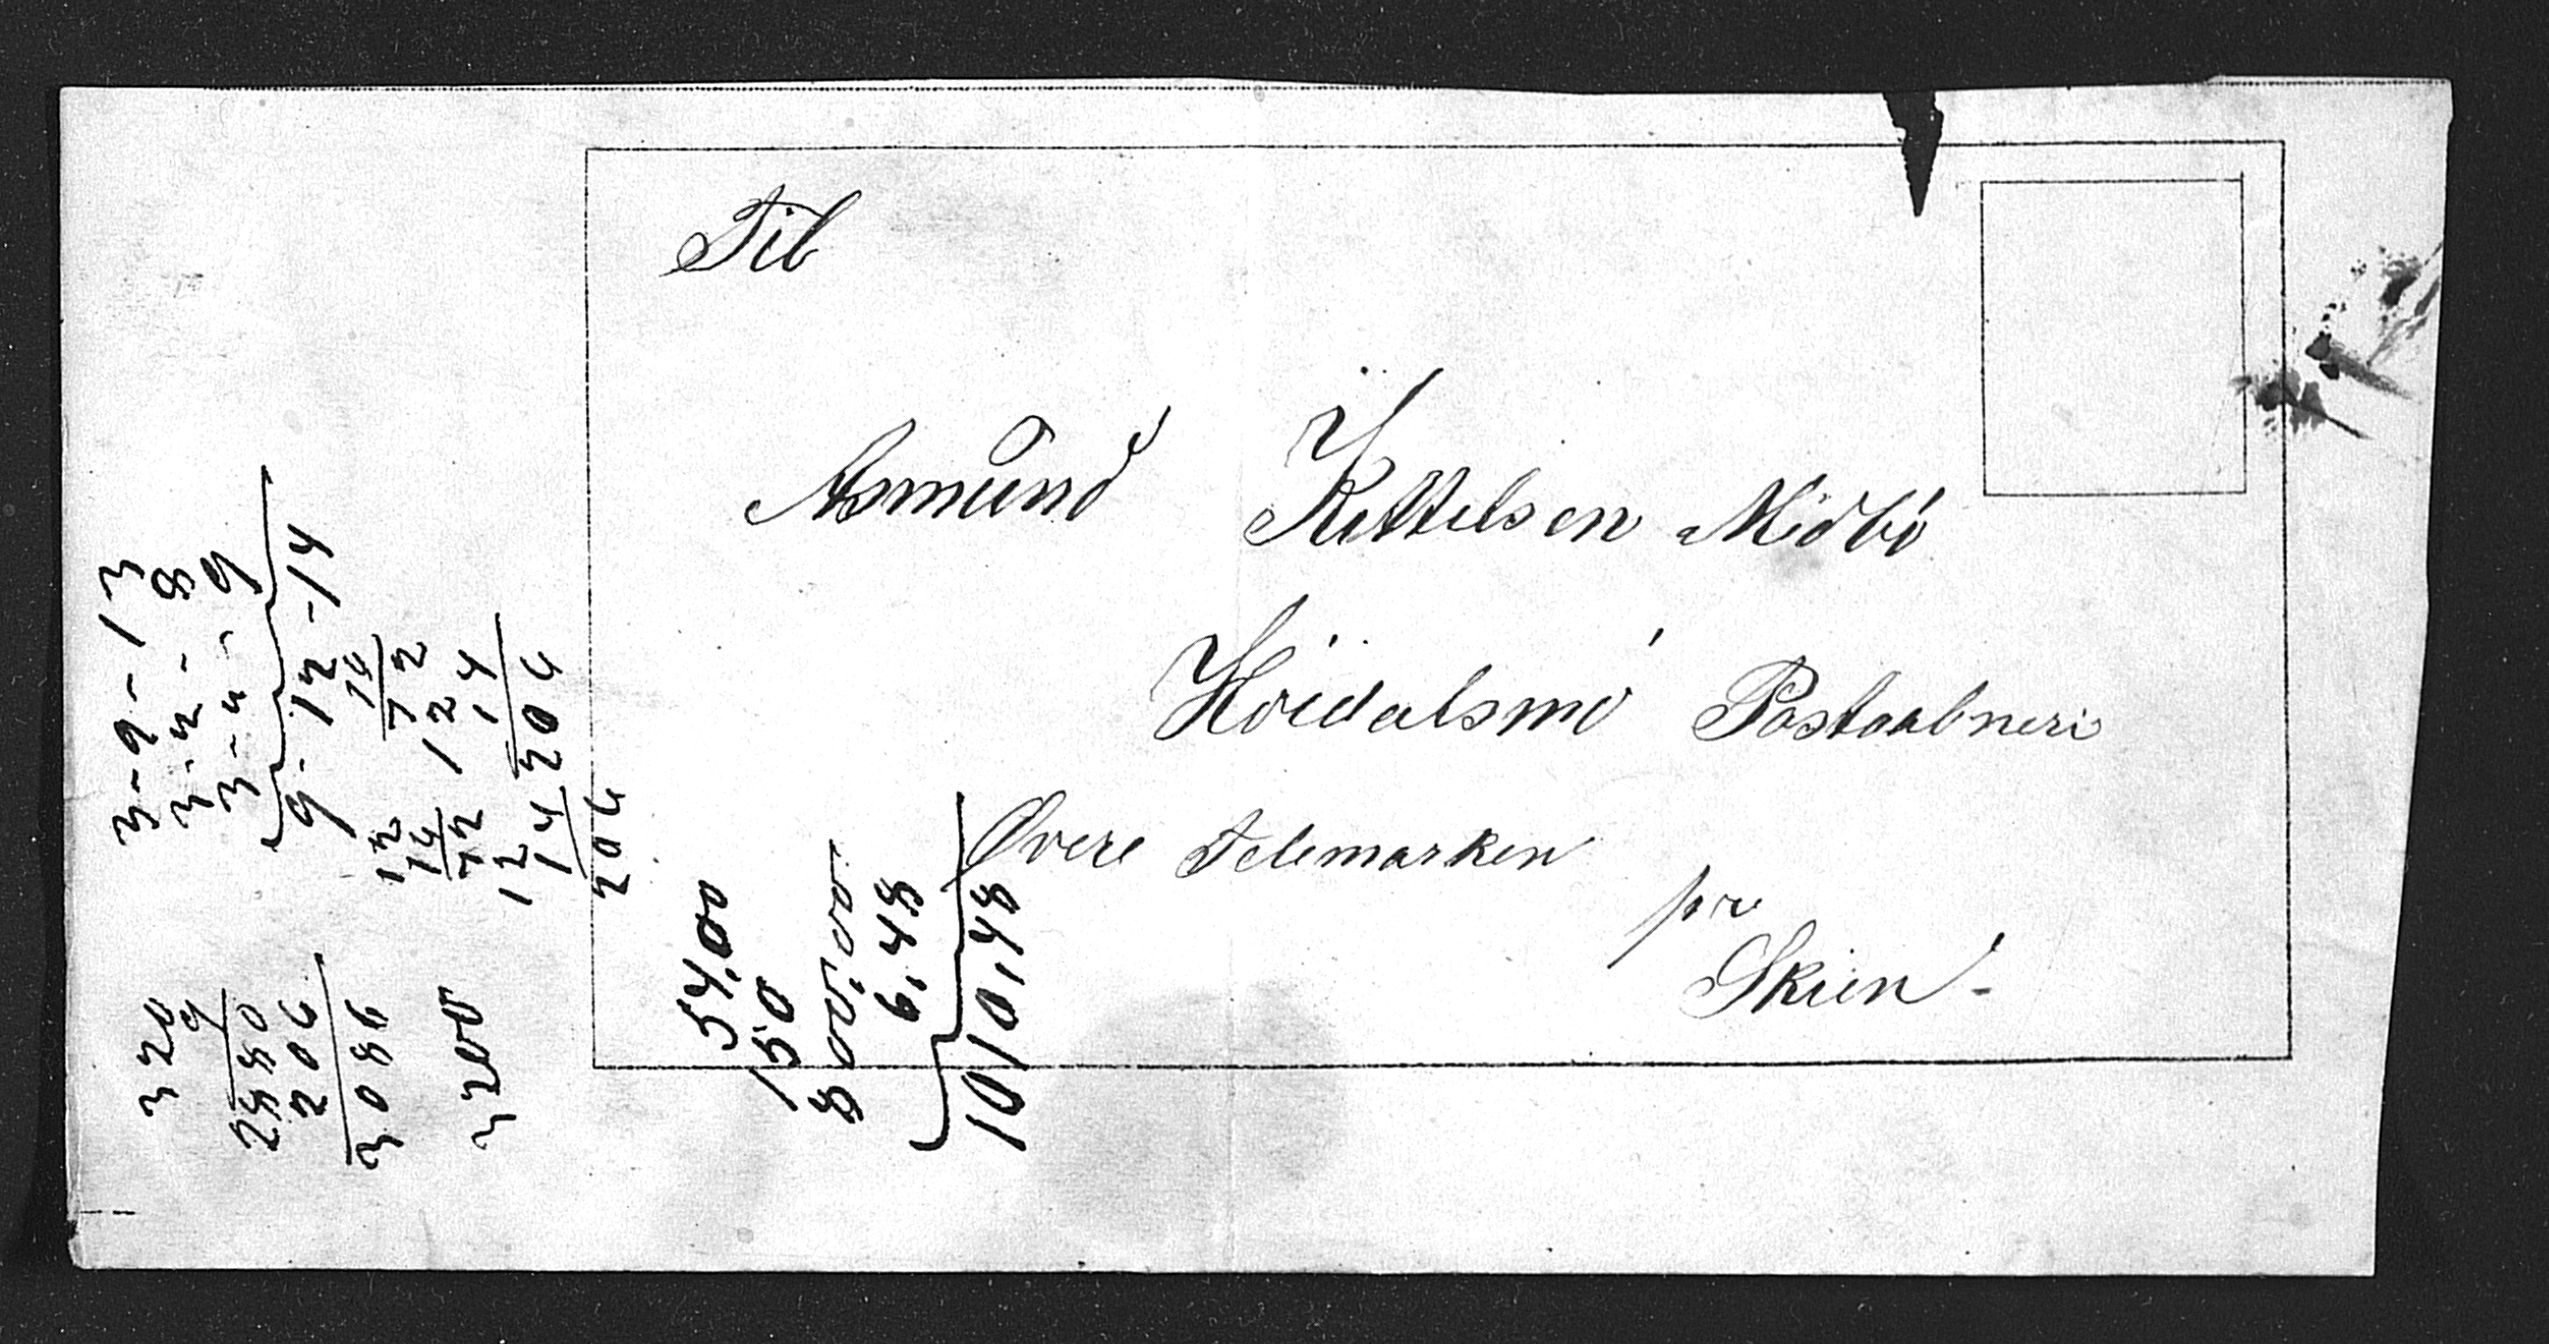 Til
Asmund Kittelsen Midbö
Höidalsmó Postaabneri
Øvere Telemarken
pr
Skien-
3-2-13
3-2-8
3-2-9
9-12-14
12
14
72
12
14
206
320
9
2880
206
3086
3200
54,00
150
800,00
6,48
1010,48